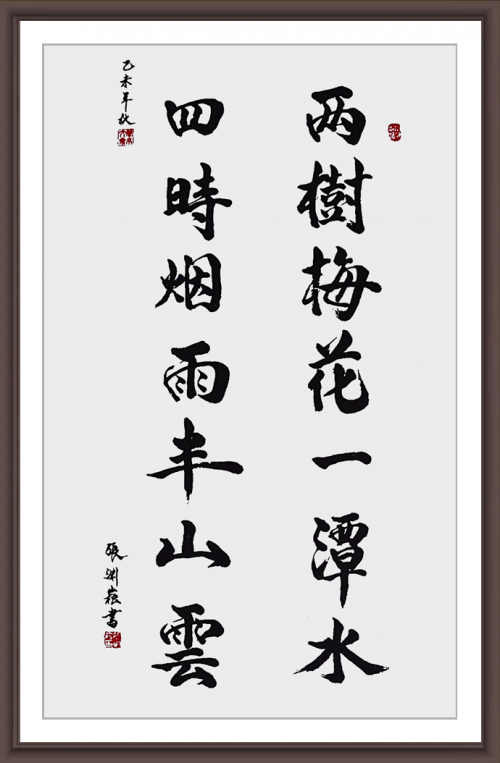 两樹梅花一潭水
四時烟雨半山雲
乙未年秋
張渊崧書